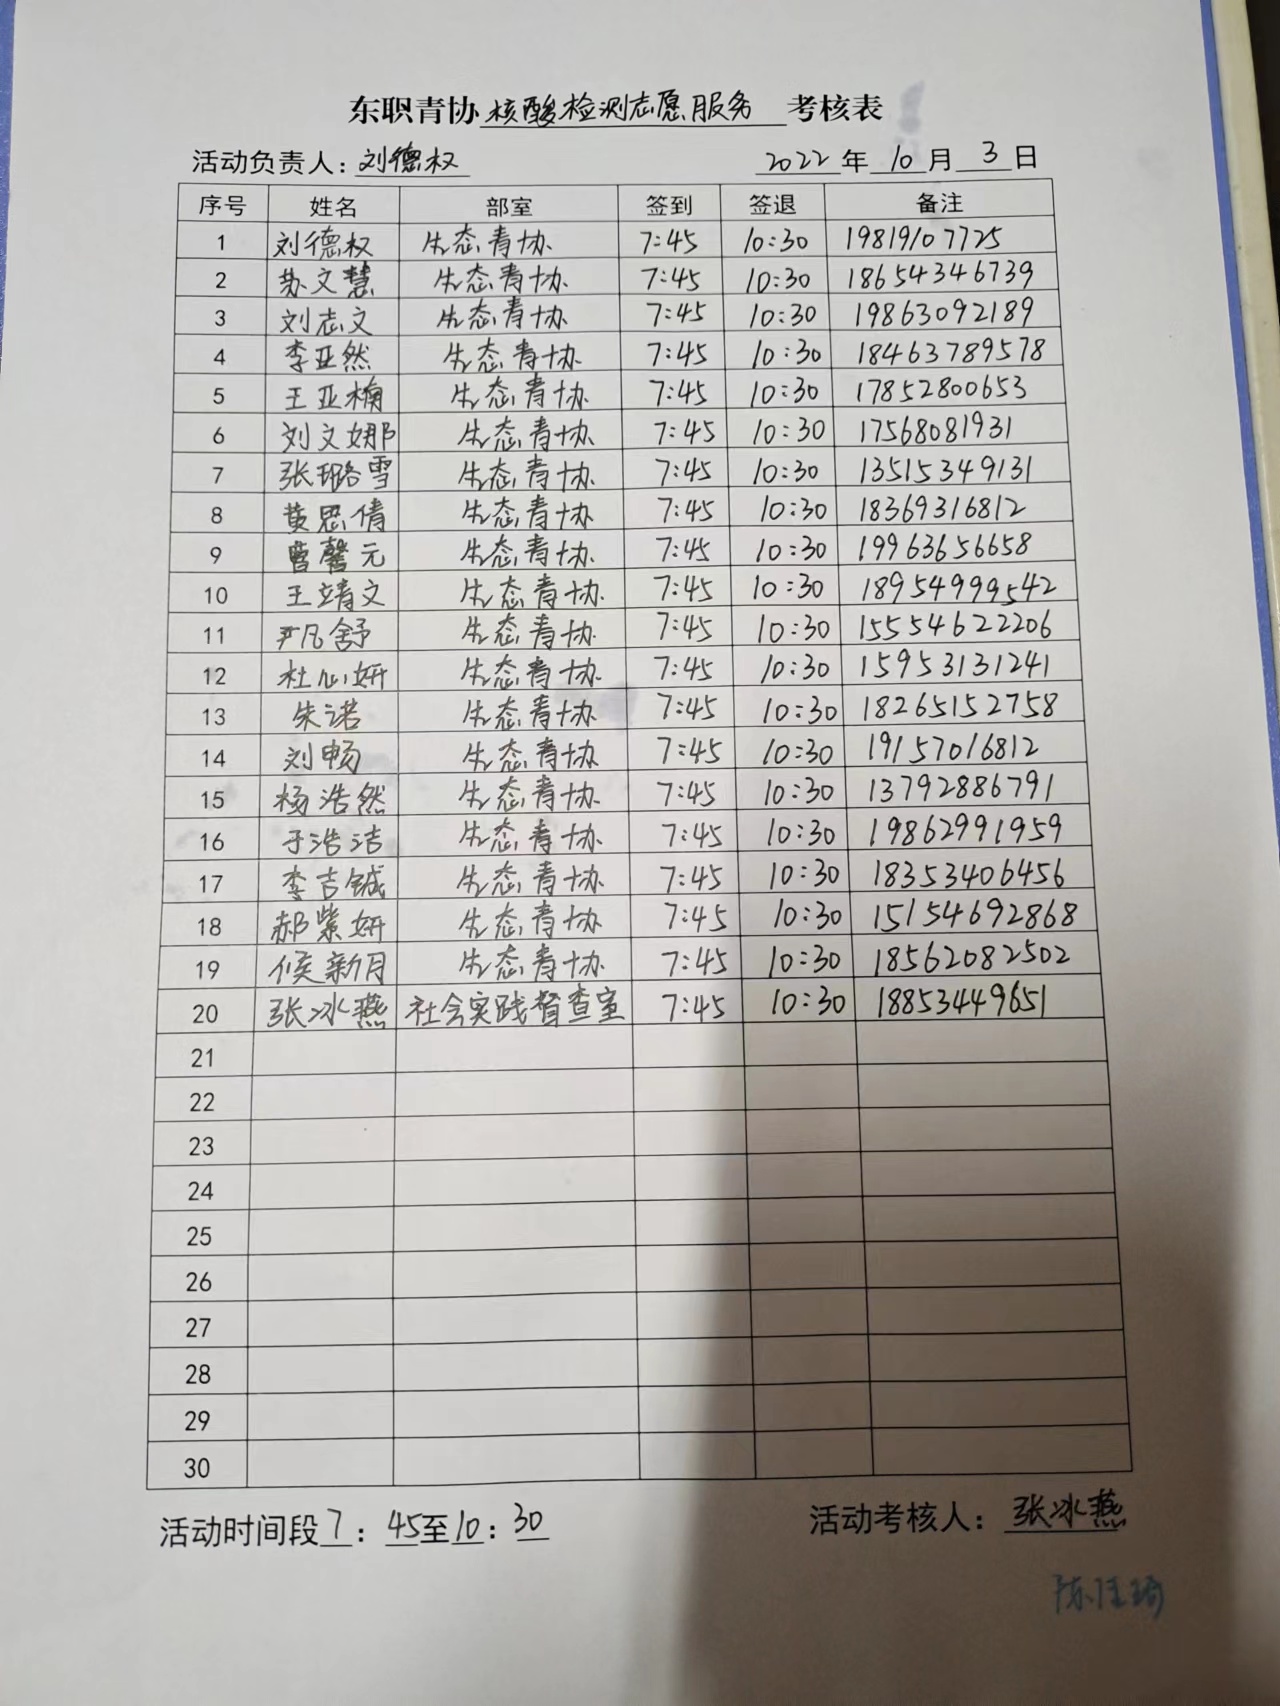 东职青协核酸检测志愿服务 考核表
活动负责人：刘德权 2022年10月3日
序号 姓名 部室 签到 签退 备注
1 刘德权 生态青协 7:45 10:30 19819107725
2 苏文慧 生态青协 7:45 10:30 18654346739
3 刘志文 生态青协 7:45 10:30 19863092189
4 李亚然 生态青协 7:45 10:30 18463789578
5 王亚楠 生态青协 7:45 10:30 17852800653
6 刘文娜 生态青协 7:45 10:30 17568081931
7 张璐雪 生态青协 7:45 10:30 13515349131
8 黄思倩 生态青协 7:45 10:30 18369316812
9 曹馨元 生态青协 7:45 10:30 19963656658
10 王靖文 生态青协 7:45 10:30 18954999542
11 尹凡舒 生态青协 7:45 10:30 15554622206
12 杜心妍 生态青协 7:45 10:30 15953131241
13 朱诺 生态青协 7:45 10:30 18265152758
14 刘畅 生态青协 7:45 10:30 19157016812
15 杨浩然 生态青协 7:45 10:30 13792886791
16 于浩洁 生态青协 7:45 10:30 19862991959
17 李吉铖 生态青协 7:45 10:30 18353406456
18 郝紫妍 生态青协 7:45 10:30 15154692868
19 候新月 生态青协 7:45 10:30 18562082502
20 张冰燕 社会实践督查室 7:45 10:30 18853449651
21
22
23
24
25
26
27
28
29
30
活动时间段7：45至10：30 活动考核人：张冰燕